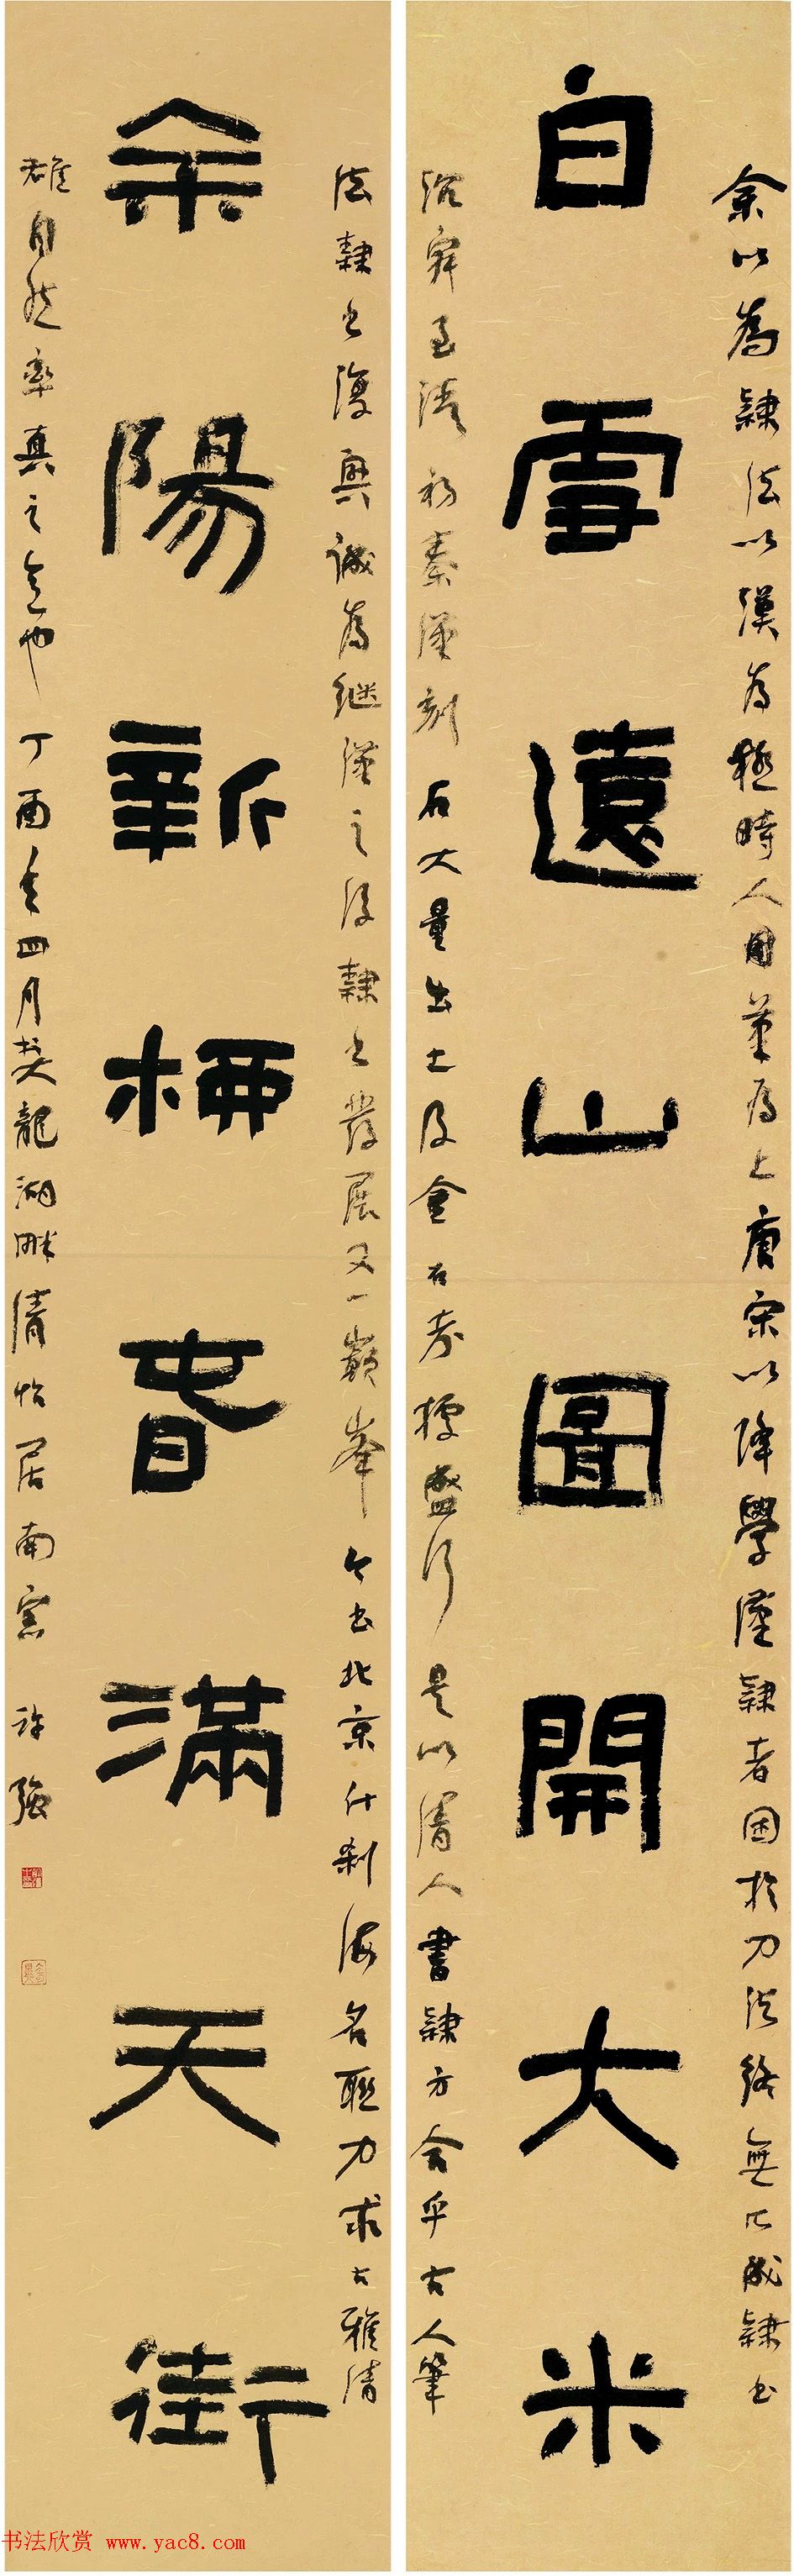 白雪遠山圖開大米
余陽新柳春滿天街
余以為隸法以漢為極時人用筆為上唐宋以降學漢隸者困於刀法終無以成隸書
石大量出土及金石考據盛行是以清人書隸方合乎古人筆
法隸書復興誠為繼漢之後隸書發展又一巔峯今書北京什剎海名聯力求古雅清
雄自然率真之意也丁酉年四月於大龍湖畔清怡居南窗許強
书法欣赏 www.yac8.com